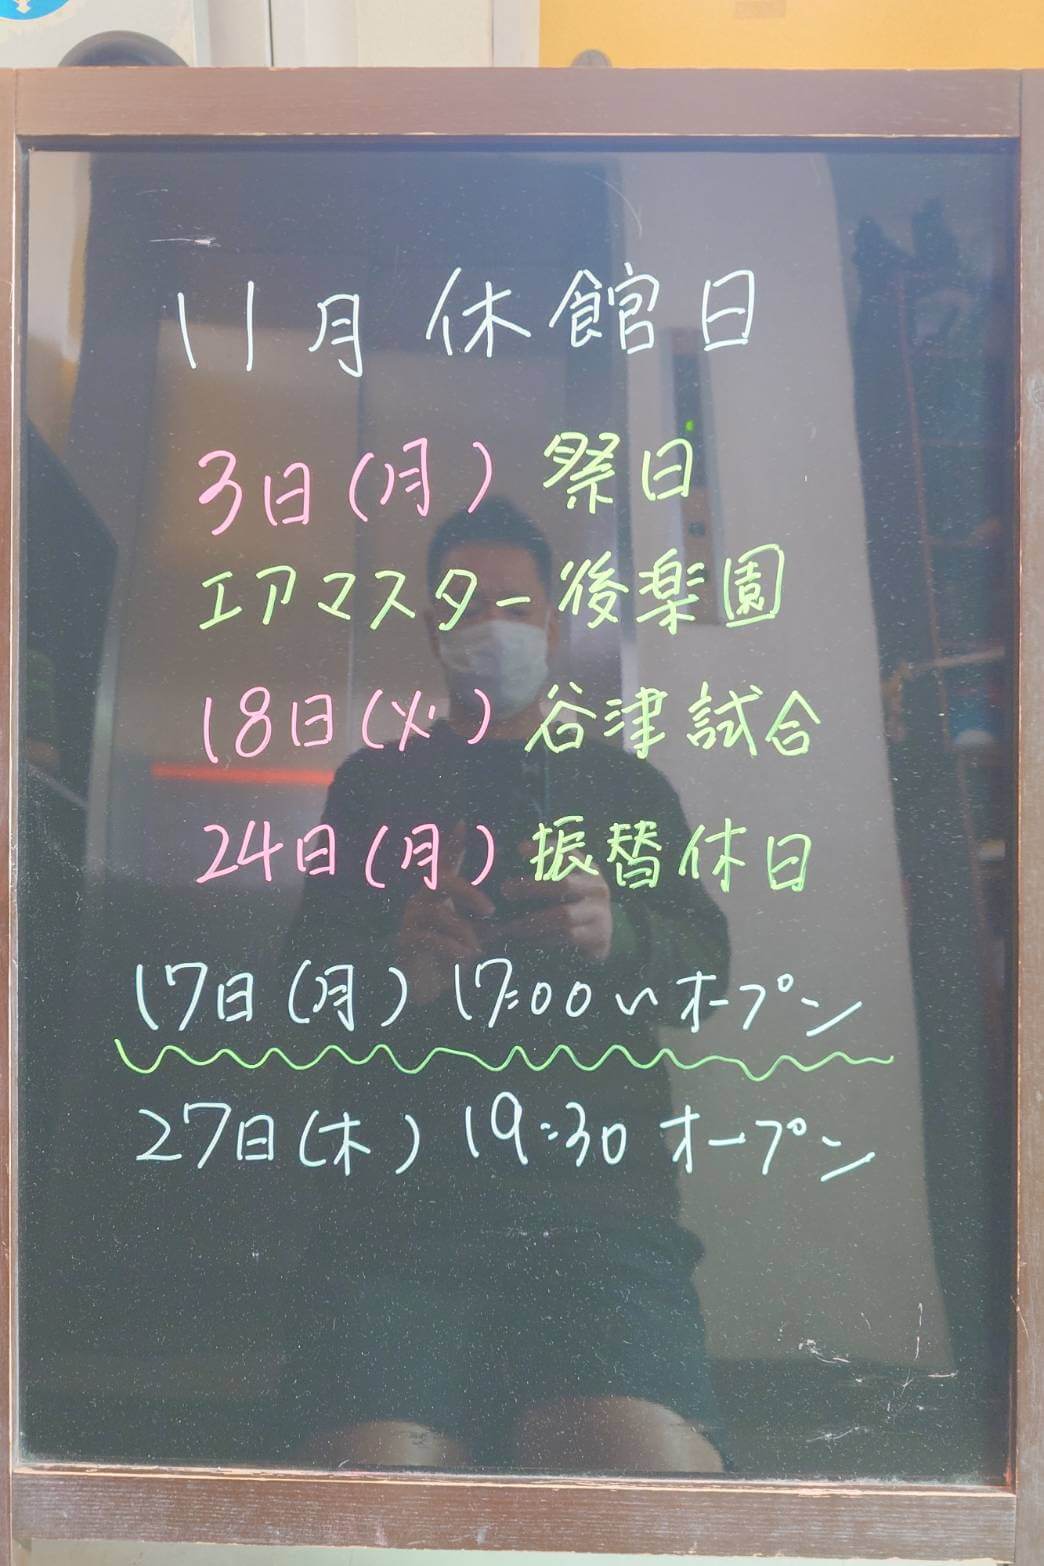 11月 休館日
3日(月) 祭日
エアマスター後楽園
18日(火) 谷津試合
24日(月) 振替休日
17日(月) 17:00いオープン
27日(木) 19:30 オープン